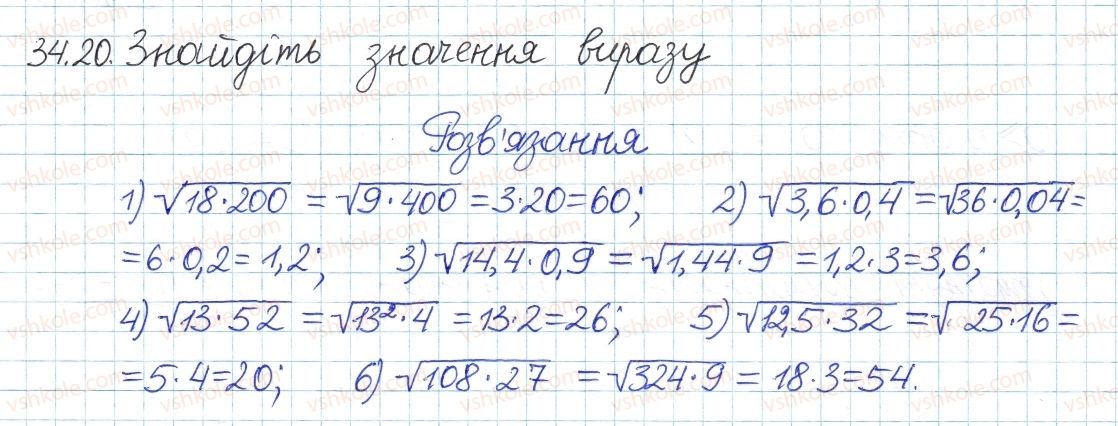 34.20. Знайдіть значення виразу
Розв'язання
1) √18·200 = √9·400 = 3·20 = 60; 2) √3,6·0,4 = √36·0,04 =
= 6·0,2 = 1,2; 3) √14,4·0,9 = √1,44·9 = 1,2·3 = 3,6;
4) √13·52 = √13²·4 = 13·2 = 26; 5) √12,5·32 = √25·16 =
= 5·4 = 20; 6) √108·27 = √324·9 = 18·3 = 54.